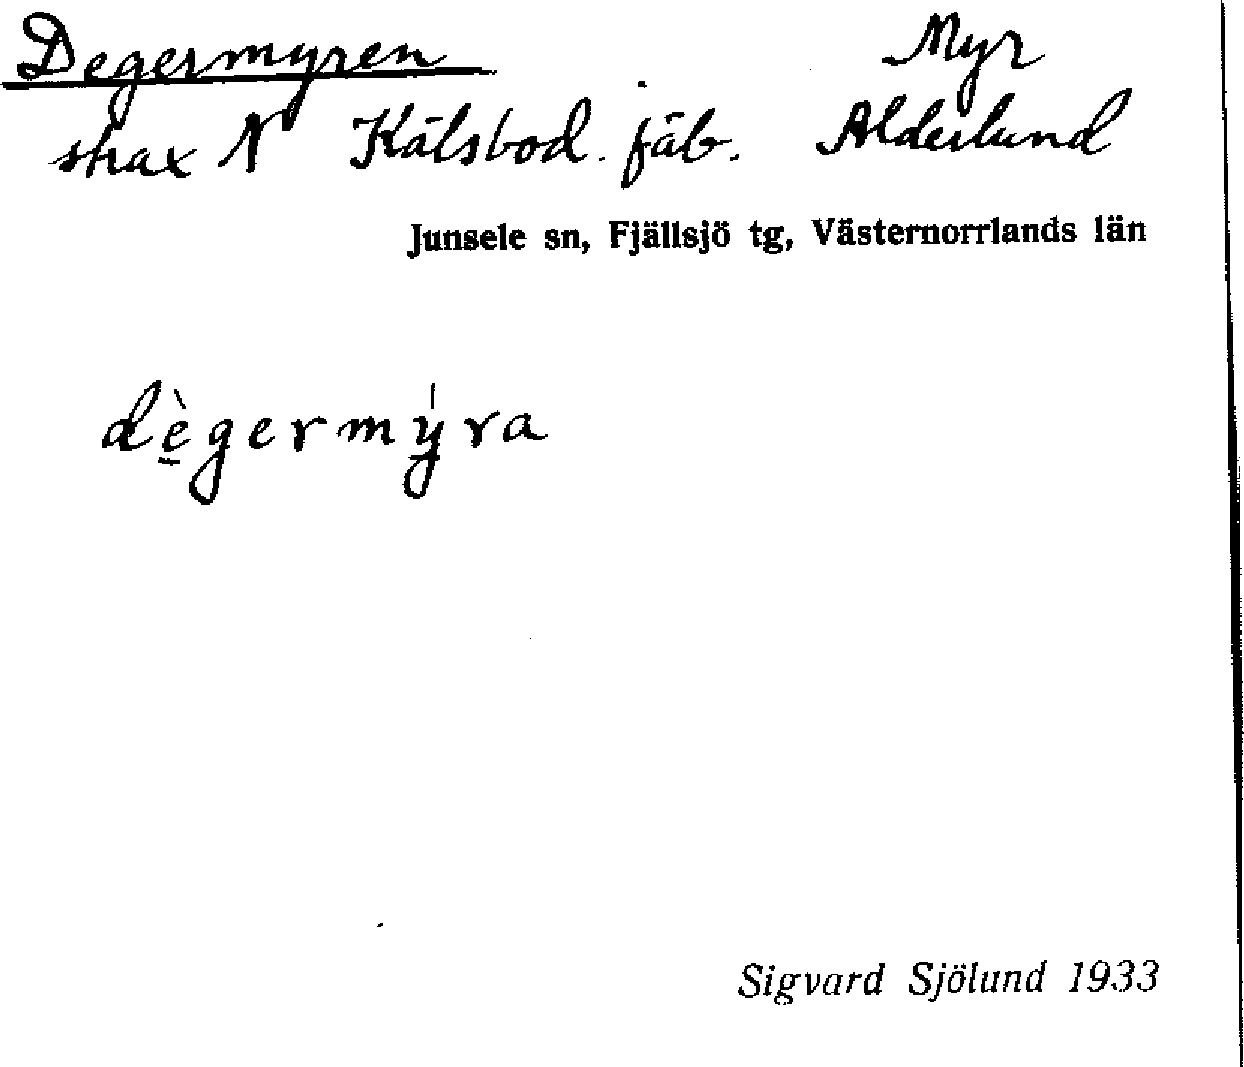 Degermyren Myr
strax N Kälsbod. fäb. Alderlund
Junsele sn, Fjällsjö tg, Västernorrlands län
dè̱germý̱ra
Sigvard Sjölund 1933